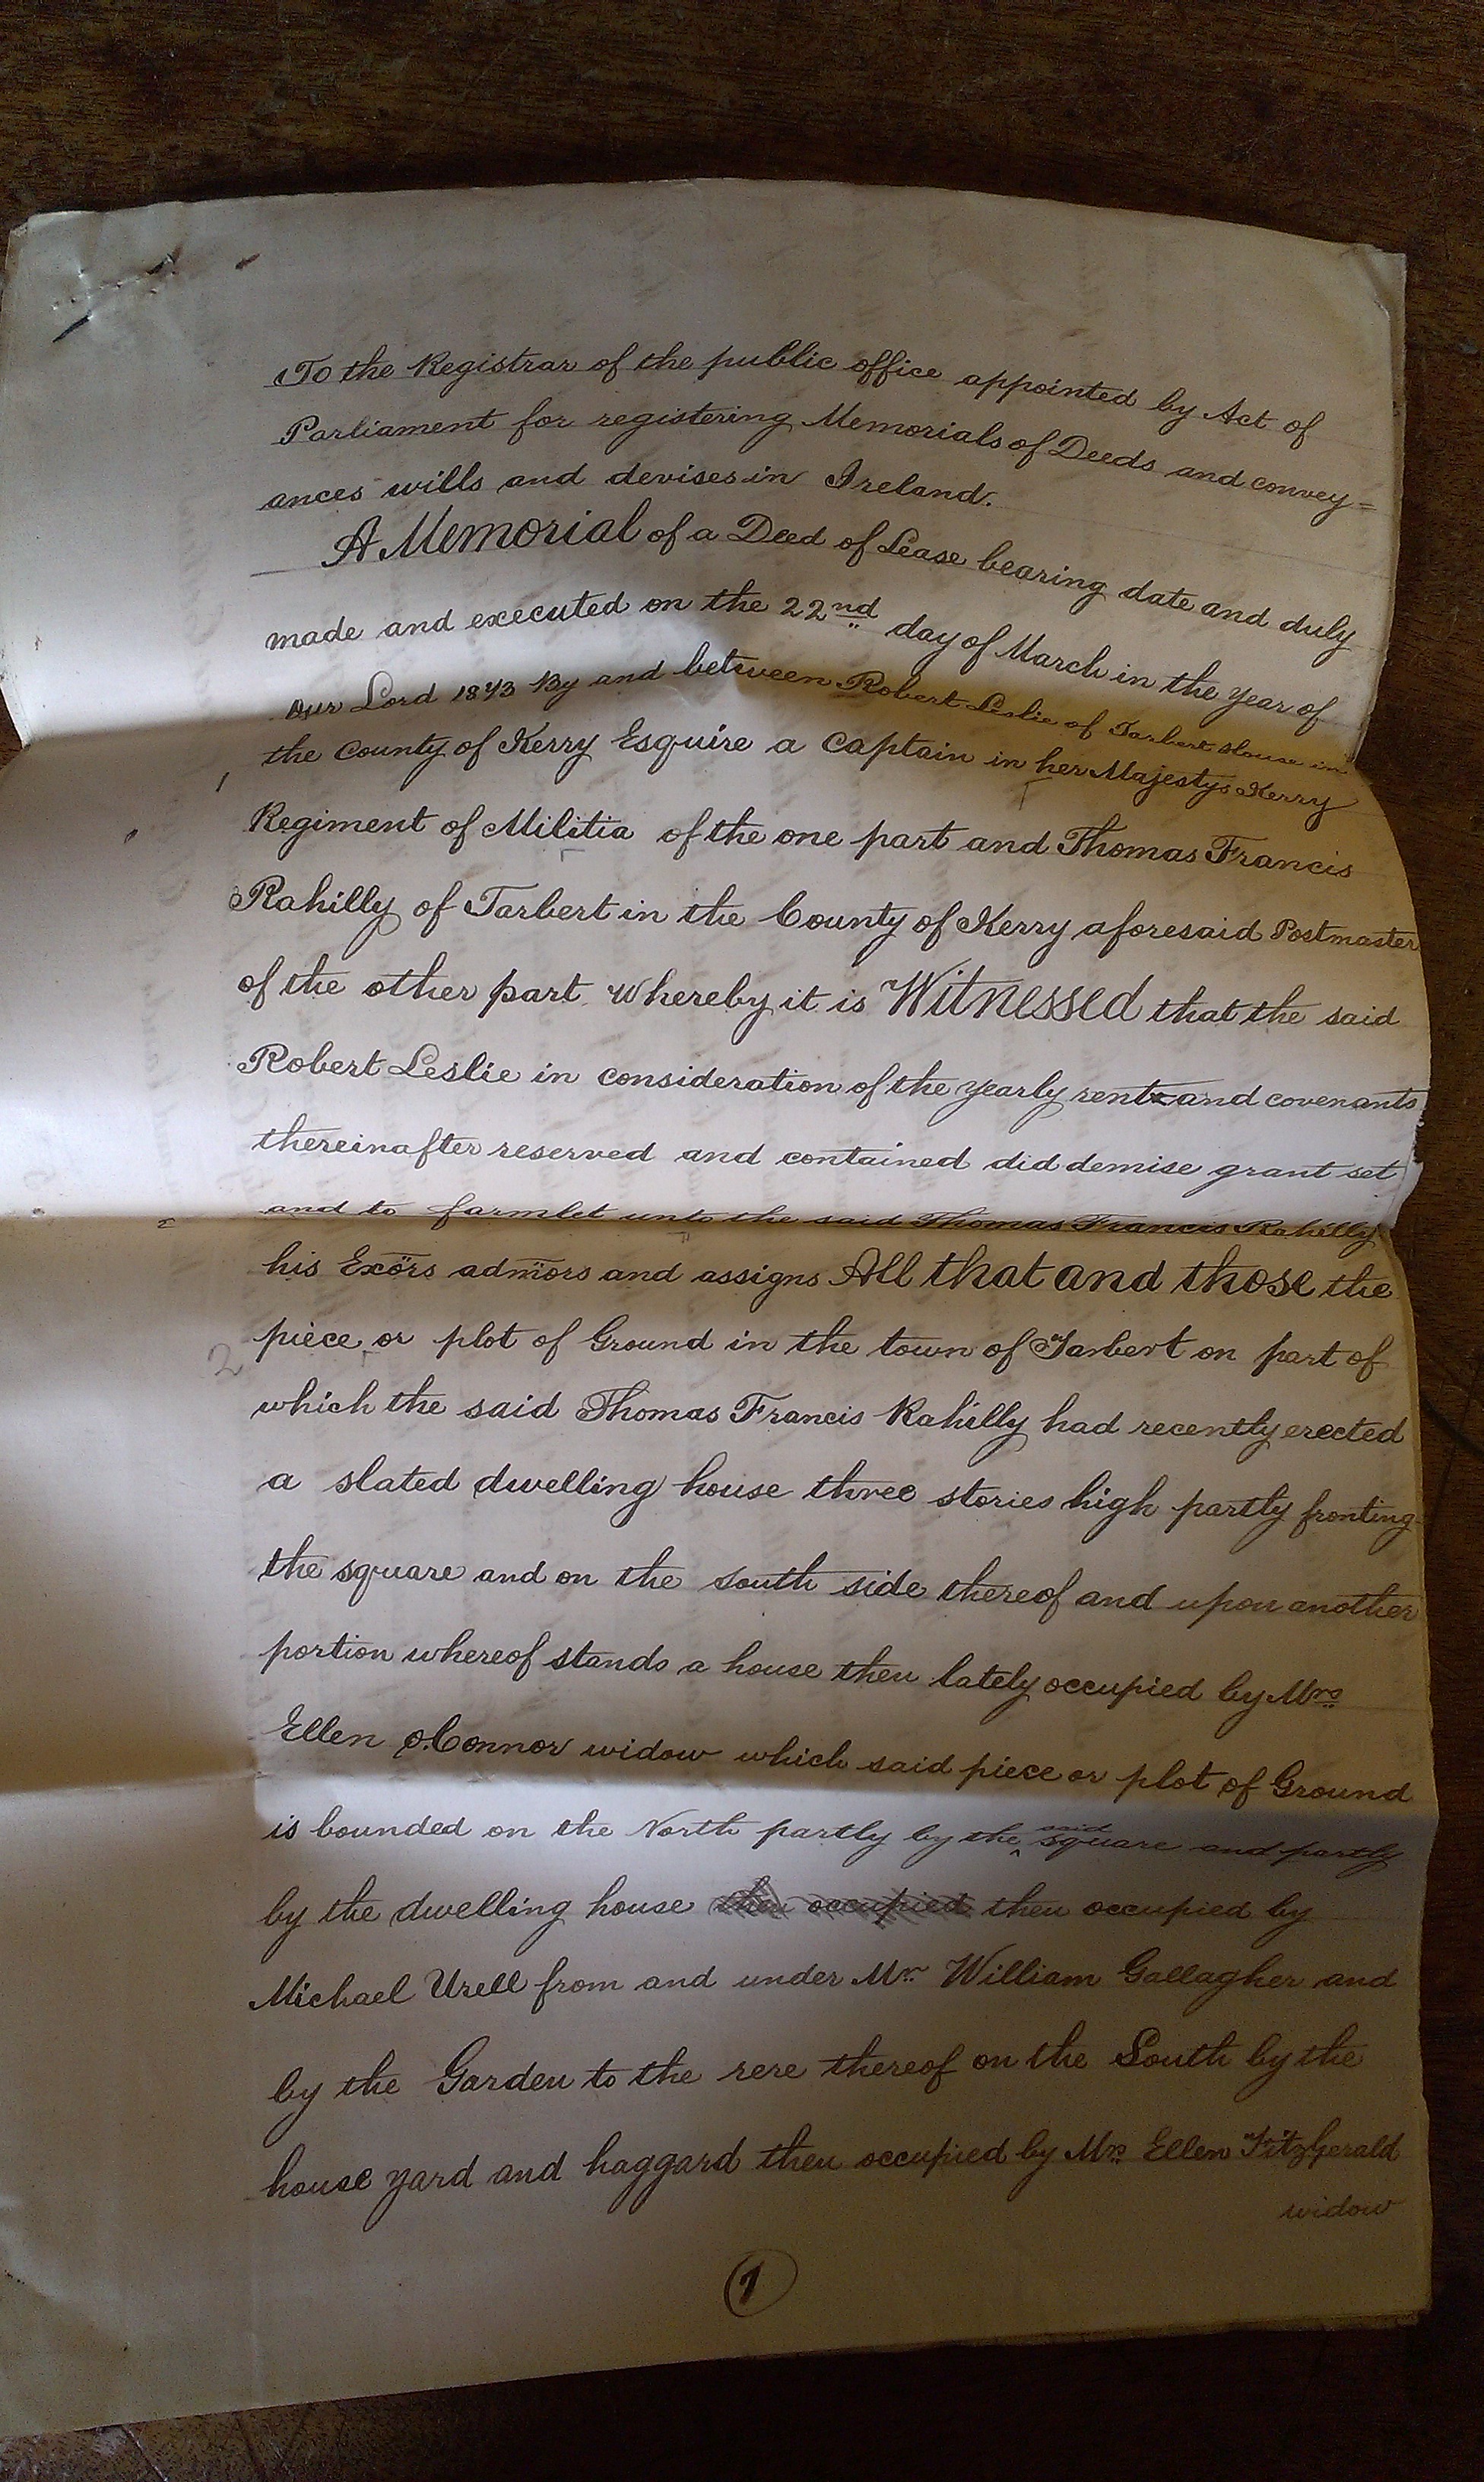 To the Registrar of the public office appointed by Act of
Parliament for registering Memorials of Deeds and convey=
ances wills and devises in Ireland.
A Memorial of a Deed of Lease bearing date and duly
made and executed on the 22nd day of March in the year of
our Lord 1873 By and between Robert Leslie of Tarbert House in
the County of Kerry Esquire a Captain in her Majestys Kerry
Regiment of Militia of the one part and Thomas Francis
Rahilly of Tarbert in the County of Kerry aforesaid Postmaster
of the other part whereby it is Witnessed that the said
Robert Leslie in consideration of the yearly rent and covenants
thereinafter reserved and contained did demise grant set
and to farmlet unto the said Thomas Francis Rahilly
his Exors admors and assigns All that and those the
piece or plot of Ground in the town of Tarbert on part of
2
which the said Thomas Francis Rahilly had recently erected
a slated dwelling house three stories high partly fronting
the square and on the south side thereof and upon another
portion whereof stands a house then lately occupied by Mrs
Ellen O.Connor widow which said piece or plot of Ground
is bounded on the North partly by the said square and partly
by the dwelling house then occupied then occupied by
Michael Urell from and under Mr William Gallagher and
by the Garden to the rere thereof on the South by the
house yard and haggard then occupied by Mrs Ellen FitzGerald
widow
1